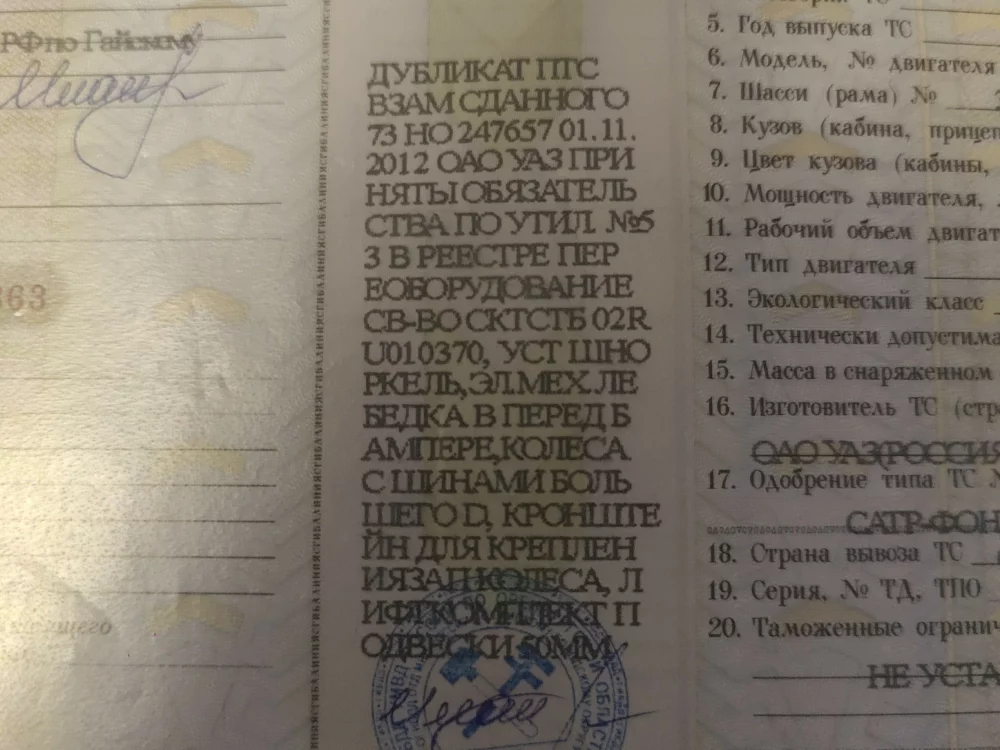 РФ по Гайскому
363
ДУБЛИКАТ ПТС
ВЗАМ СДАННОГО
73 НО 247657 01.11.
2012 ОАО УАЗ ПРИ
НЯТЫ ОБЯЗАТЕЛЬ
СТВА ПО УТИЛ. №5
3 В РЕЕСТРЕ ПЕР
ЕОБОРУДОВАНИЕ
СВ-ВО СКТСТБ 02R
U010370, УСТ ШНО
РКЕЛЬ,ЭЛ.МЕХ.ЛЕ
БЕДКА В ПЕРЕД Б
АМПЕРЕ,КОЛЕСА
С ШИНАМИ БОЛЬ
ШЕГО D, КРОНШТЕ
ЙН ДЛЯ КРЕПЛЕН
ИЯ ЗАП КОЛЕСА, Л
ИФТ КОМПЛЕКТ П
ОДВЕСКИ 50ММ
5. Год выпуска ТС
6. Модель, № двигателя
7. Шасси (рама) №
8. Кузов (кабина, прицеп
9. Цвет кузова (кабины,
10. Мощность двигателя,
11. Рабочий объем двигат
12. Тип двигателя
13. Экологический класс
14. Технически допустима
15. Масса в снаряженном
16. Изготовитель ТС (стра
ОАО УАЗ(РОССИЯ
17. Одобрение типа ТС №
САТР-ФОН
18. Страна вывоза ТС
19. Серия, № ТД, ТПО
20. Таможенные огранич
НЕ УСТА